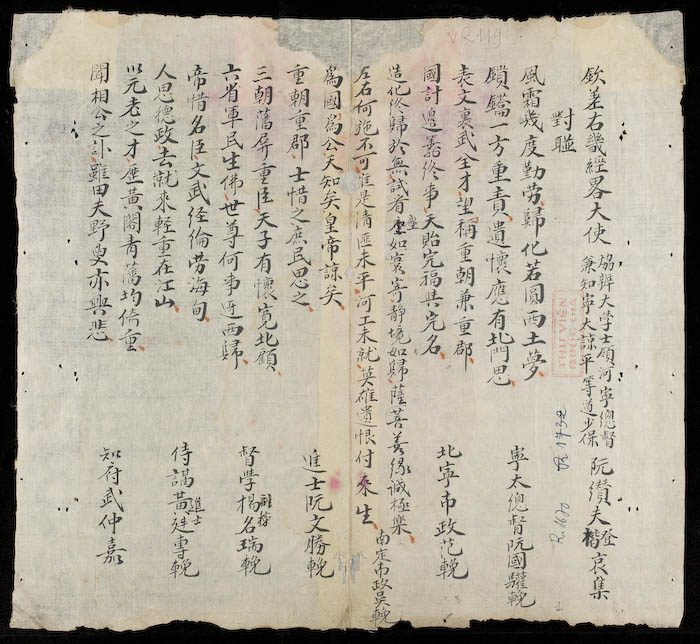 欽差右畿經略大使 協辦大學士領河寧總督 兼知寧太諒平等道少保 阮纘夫 登楷 哀集
對聯
風霜幾度勤勞歸化若圓西土夢
鎖鑰一方重責遺懷應有北門思 寧太總督阮國驩輓
表文裏武全才望稱重朝兼重郡
國計邊籌終事天貽完福其完名 北寧布政范輓
造化終歸於無試看座如寰寄靜境如歸薩菩善緣誠極樂
左右何施不可誰是清匪未平河工未就英雄遺恨付來生 南定布政吳輓
為國為公天知矣皇帝諒矣
重朝重郡士惜之庶民思之 進士阮文勝輓
三朝藩屏重臣天子有懷寬北顧
六省軍民生佛世尊何事迓西歸 督學副榜楊名瑞輓
帝惜名臣文武經綸勞海甸
人思德政去就來輕重在江山 侍講進士黃廷專輓
以元老之才歷黃閣青藩均倚重
聞相公之訃雖田夫野叟亦興悲 知府武仲嘉
VR119
THƯ VIỆN
R.1620